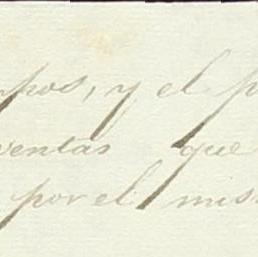 mpos, y el p
ventas que
por el mis